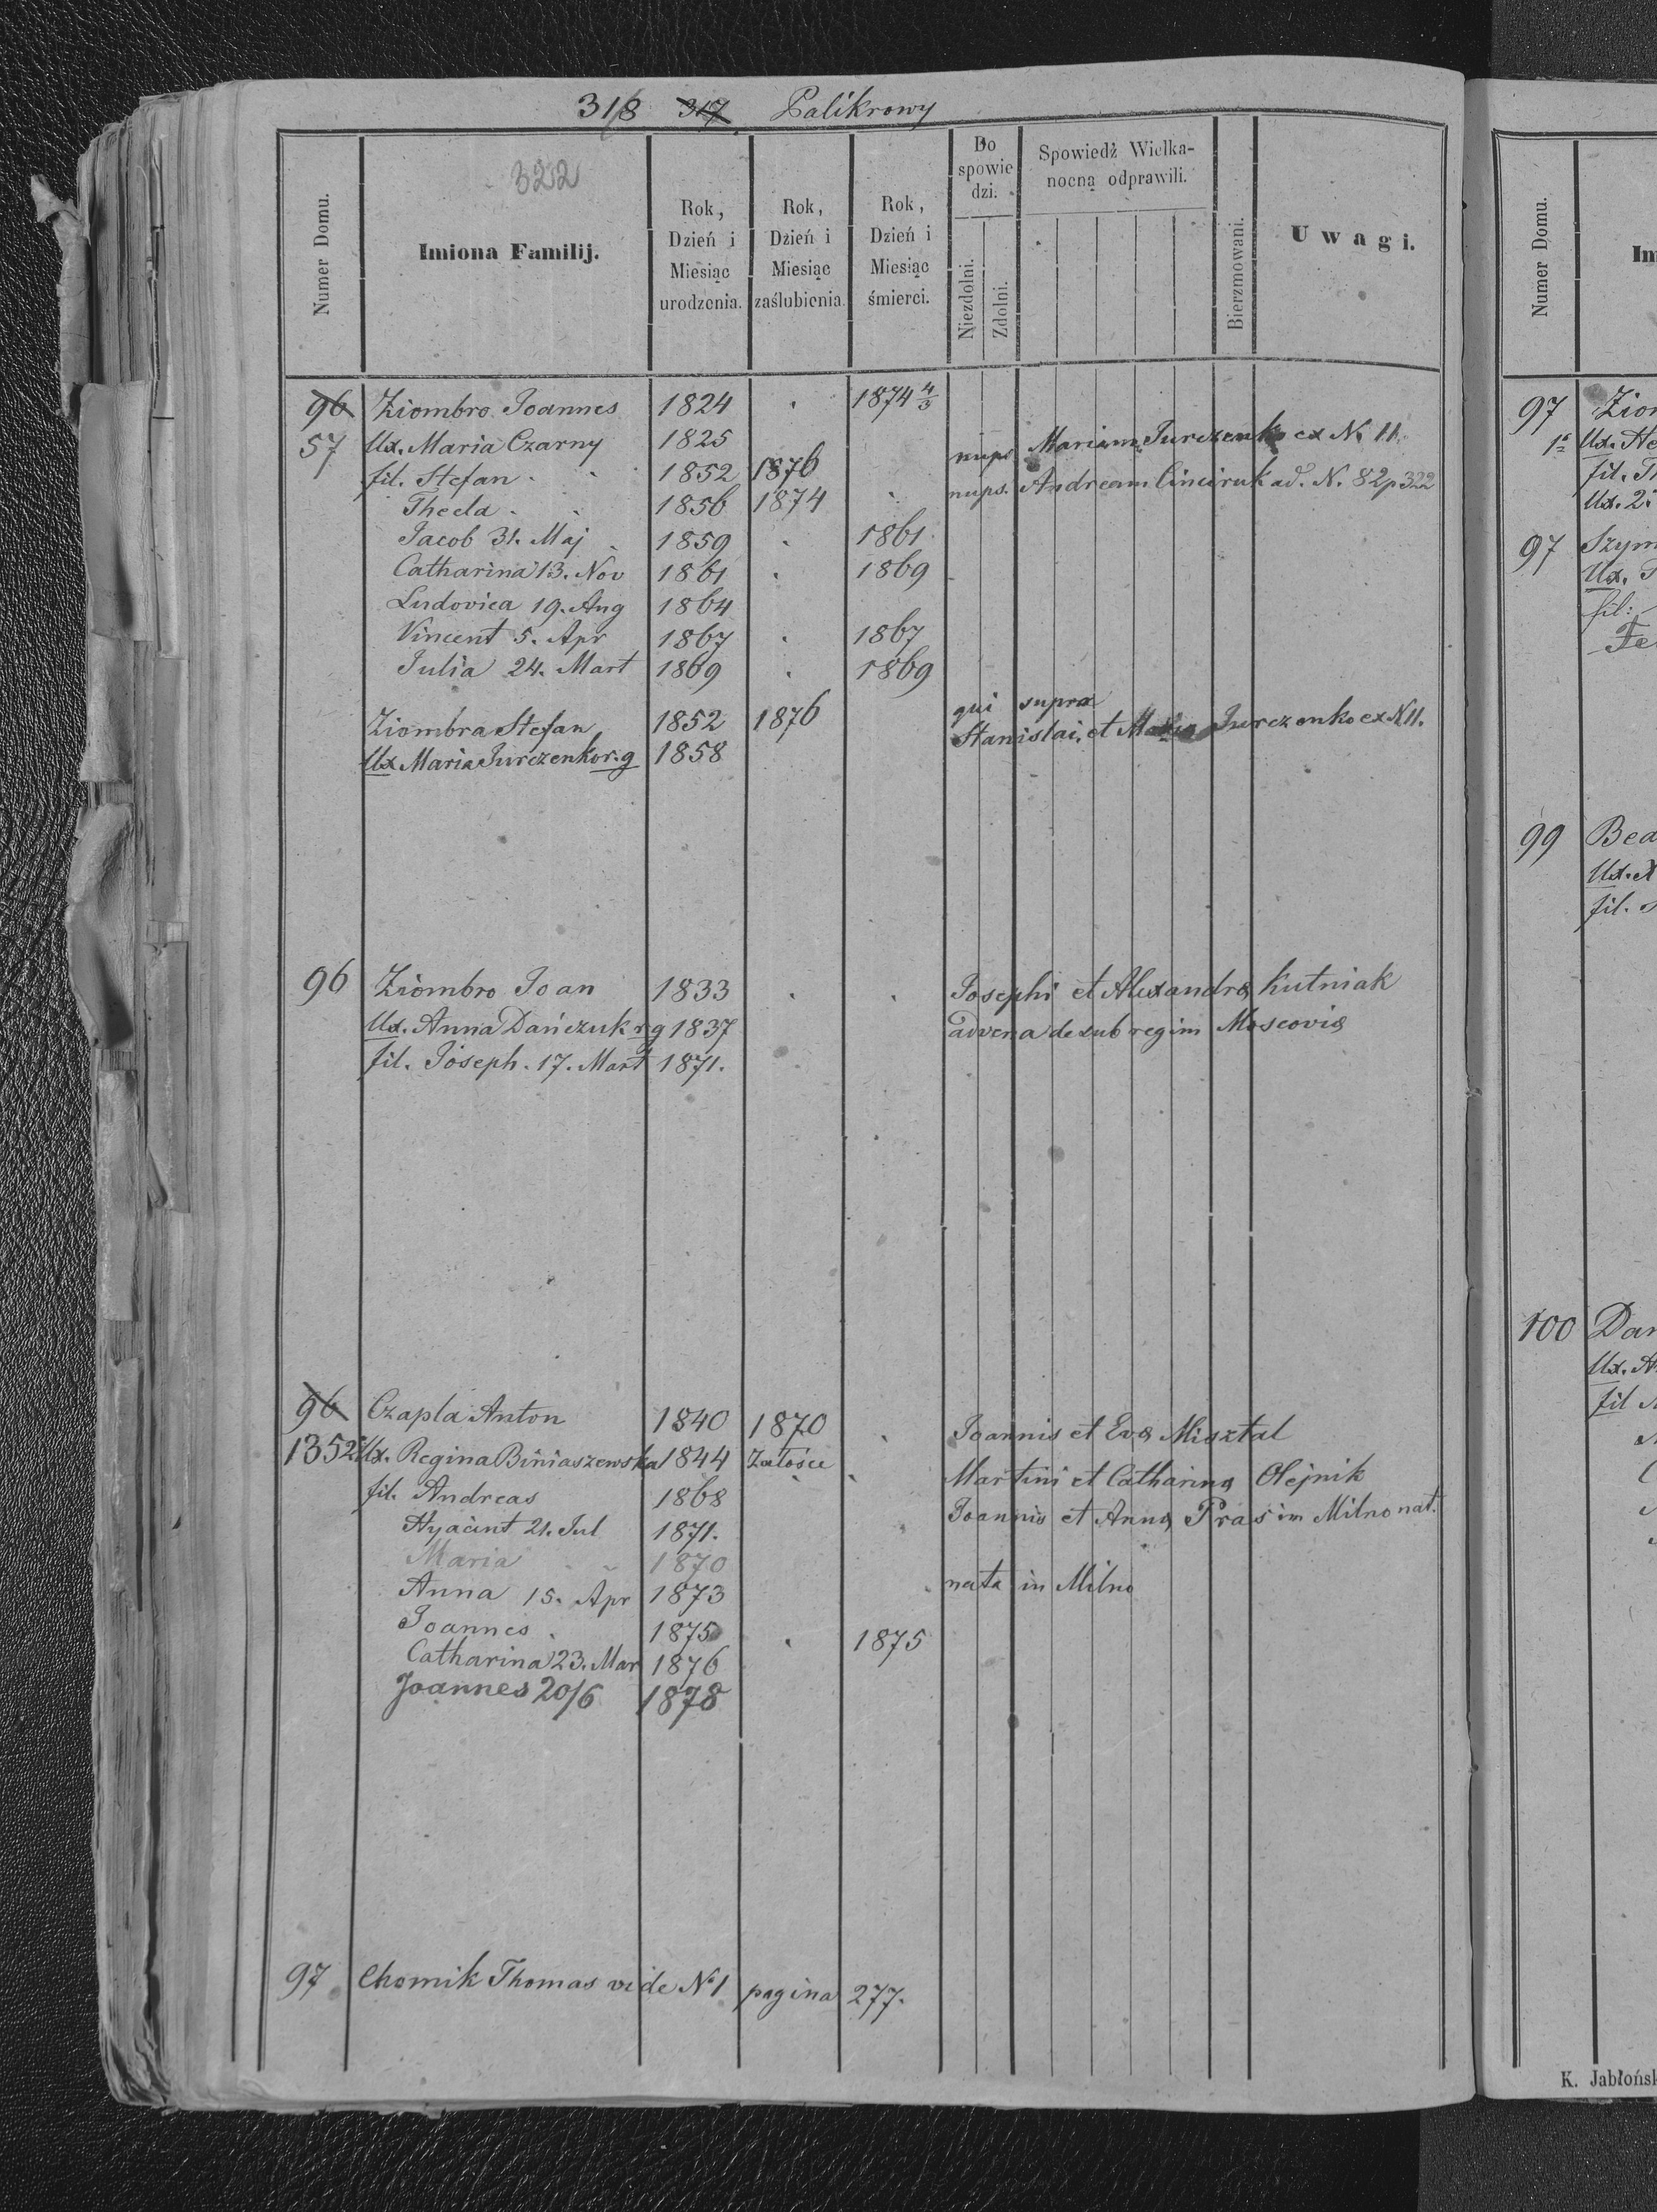 318 317 Palikrowy
322
Numer Domu.
Imiona Familij.
Rok, Dzień i Miesiąc urodzenia.
Rok, Dzień i Miesiąc zaślubienia.
Rok, Dzień i Miesiąc śmierci.
Do spowiedzi.
Niezdolni.
Zdolni.
Spowiedź Wielkanocną odprawili.
Bierzmowani.
Uwagi.
96 Ziombro Joannes 1824 1874 4/3
57 Ux. Maria Czarny 1825
fil. Stefan 1852 1876 nups Mariam Jurczenko ex N. 11.
Thecla 1856 1874 nups. Andream Cinciruk ad. N. 82 p 322
Jacob 31. Maj 1859 1861
Catharina 13. Nov 1861 1869
Ludovica 19. Aug 1864
Vincent 5. Apr 1867 1867
Julia 24. Mart 1869 1869
Ziombra Stefan 1852 1876 qui supra
Ux Maria Jurczenko r. g 1858 Stanislai et Maria Jurczenko ex N 11.
96 Ziombro Joan 1833 Josephi et Alexandra Kutniak
Ux. Anna Dańczuk r g 1837 advena de sub regim Moscovia
fil. Joseph. 17. Mart 1871.
96 Czapla Anton 1840 1870 Joannis et Eva Misztal
1352 Ux. Regina Biniaszewska 1844 Załośce Martini et Catharina Olejnik
fil. Andreas 1868 Joannis et Anna Pras in Milno nat.
Hyacint 21. Jul 1871.
Maria 1870 nata in Milno
Anna 15. Apr 1873
Joannes 1875 1875
Catharina 23. Mar 1876
Joannes 20/6 1878
97 Chomik Thomas vide N° 1 pagina 277.
Numer Domu.
Im
97 Zior
1° Ux. He
fil. Th
Ux. 2°
97 Szym
Ux. T
fil:
Fe
99 Bea
Ux. A
fil.
100 Dan
Ux. A
fil
K. Jabłońsk